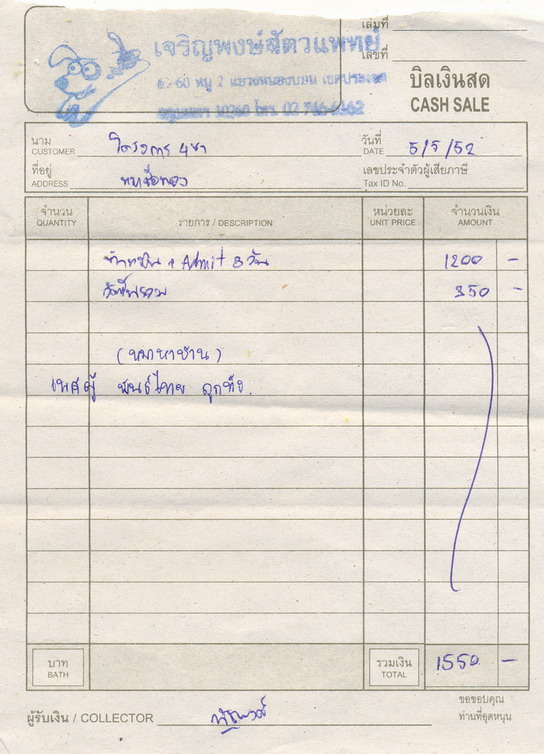 เจริญพงษ์สัตวแพทย์
หมู่ 2 แขวงหนองบอน เขตประเวศ
10260 โทร. 02
เล่มที่
เลขที่
บิลเงินสด
CASH SALE
นาม
CUSTOMER โครงการ 4 ขา
วันที่
DATE 5/5/52
ที่อยู่
ADDRESS
เลขประจำตัวผู้เสียภาษี
Tax ID No.
จำนวน
QUANTITY
รายการ / DESCRIPTION
หน่วยละ
UNIT PRICE
จำนวนเงิน
AMOUNT
ทำหมัน + Admit 3 วัน 1200 –
วัคซีนรวม 350 –
(หมาหาบ้าน)
เพศผู้ พันธุ์ไทย ถูกทิ้ง.
บาท
BATH
รวมเงิน
TOTAL
1550 –
ผู้รับเงิน / COLLECTOR
ขอขอบคุณ
ท่านที่อุดหนุน